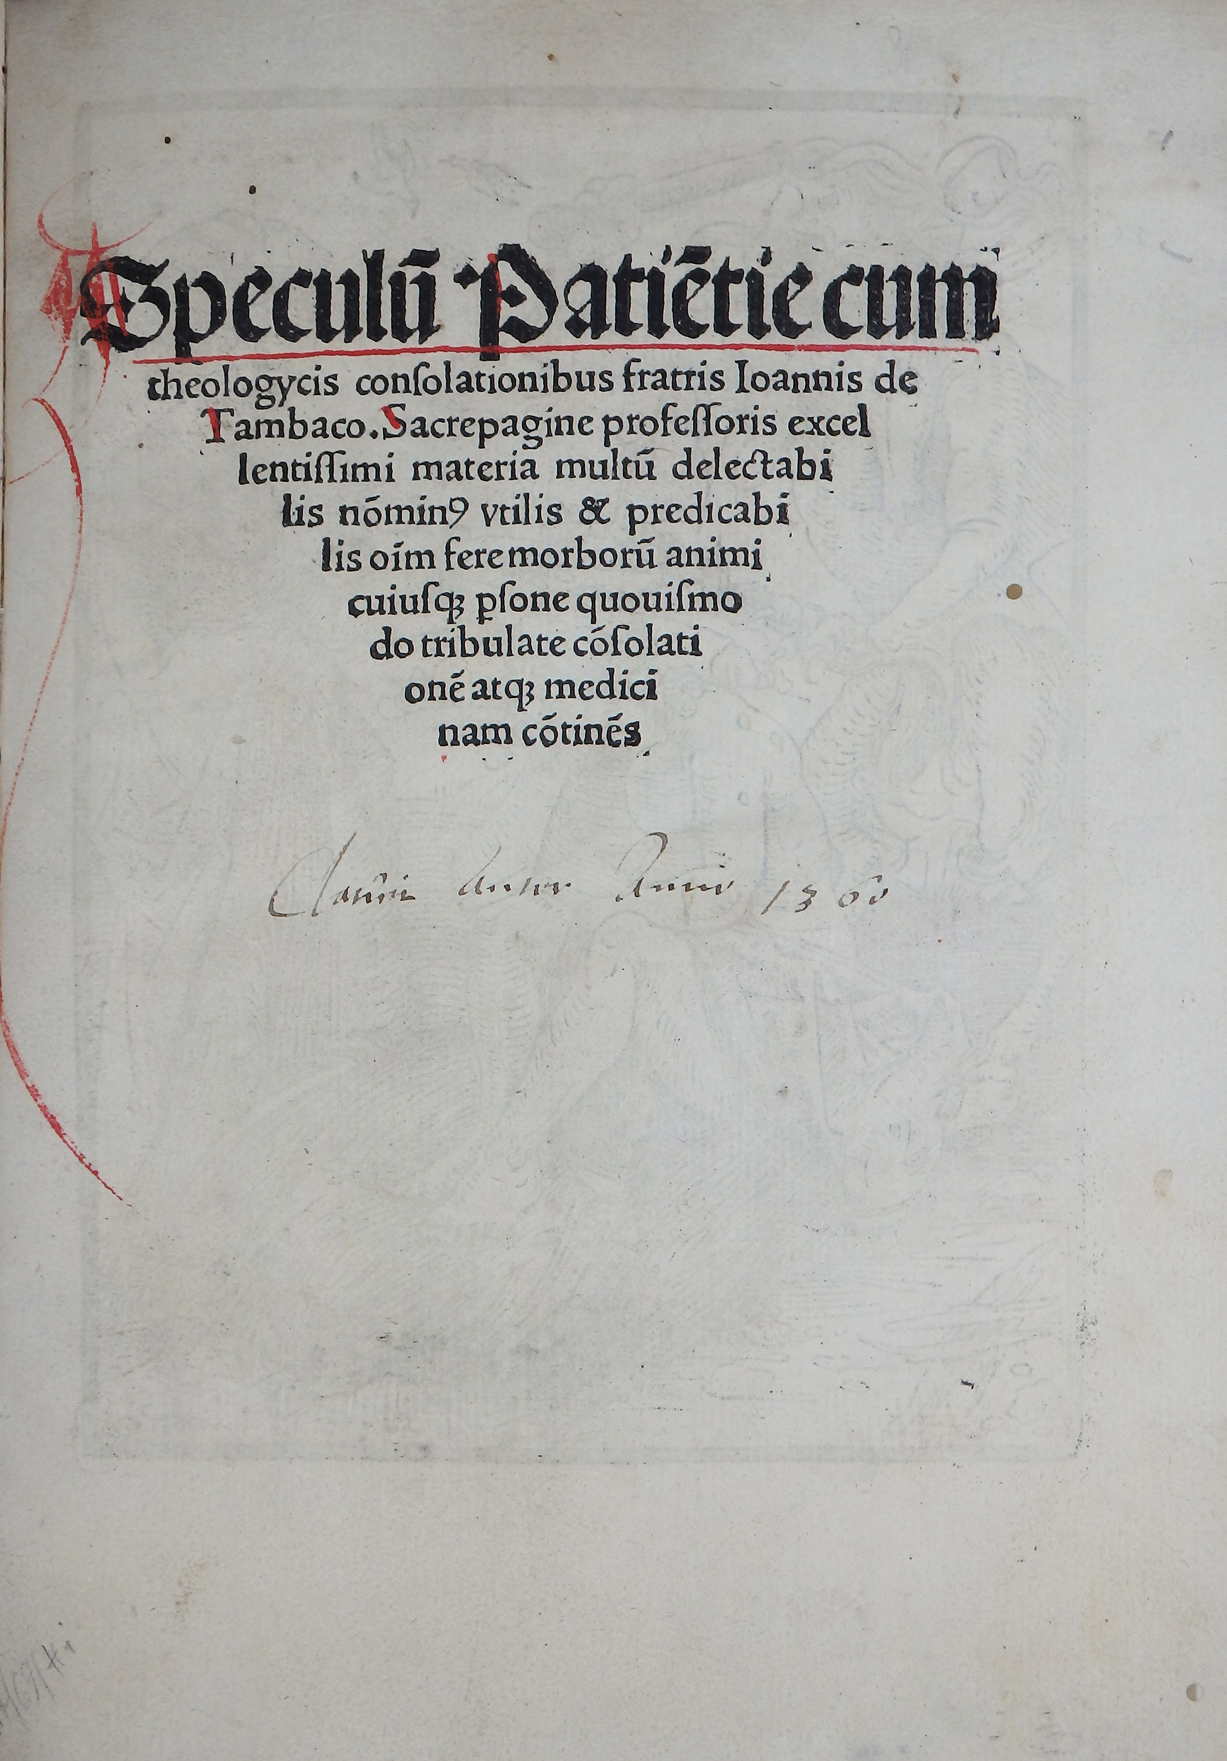 Speculū Patiētie cum
theologycis conſolationibus fratris Ioannis de
Tambaco. Sacrepagine profeſſoris excel
lentiſſimi materia multū delectabi
lis nōminꝰ vtilis & predicabi
lis oīm fere morborū animi
cuiuſqꝫ ꝑſone quouiſmo
do tribulate cōſolati
onē atqꝫ medici
nam cōtinēs